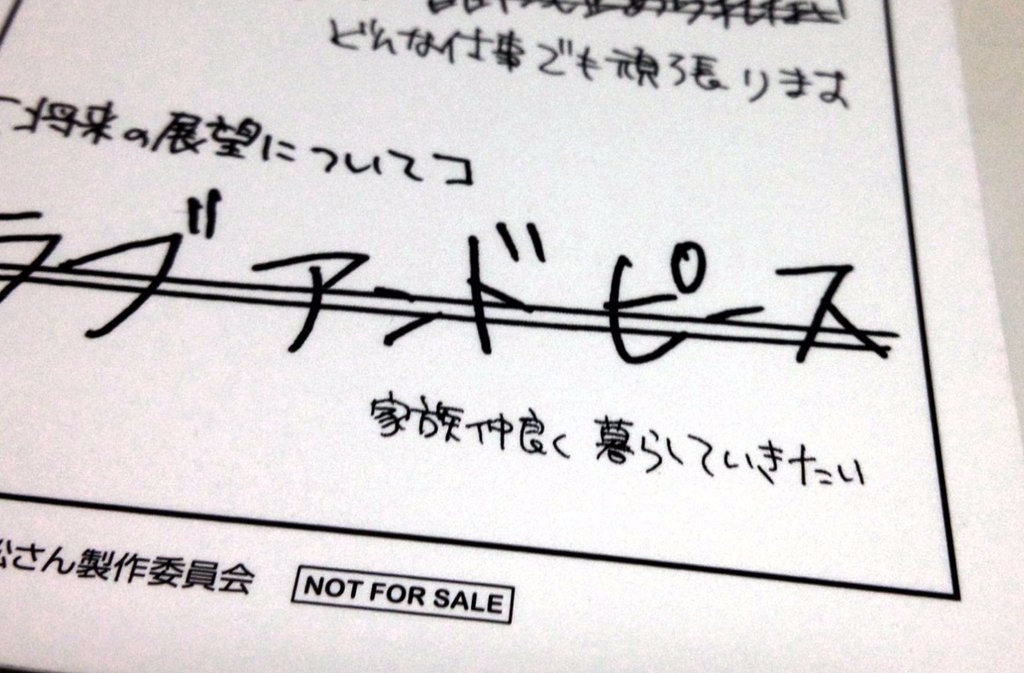 どんな仕事でも頑張ります
将来の展望について
ラブアンドピース
家族仲良く暮らしていきたい
松さん製作委員会
NOT FOR SALE